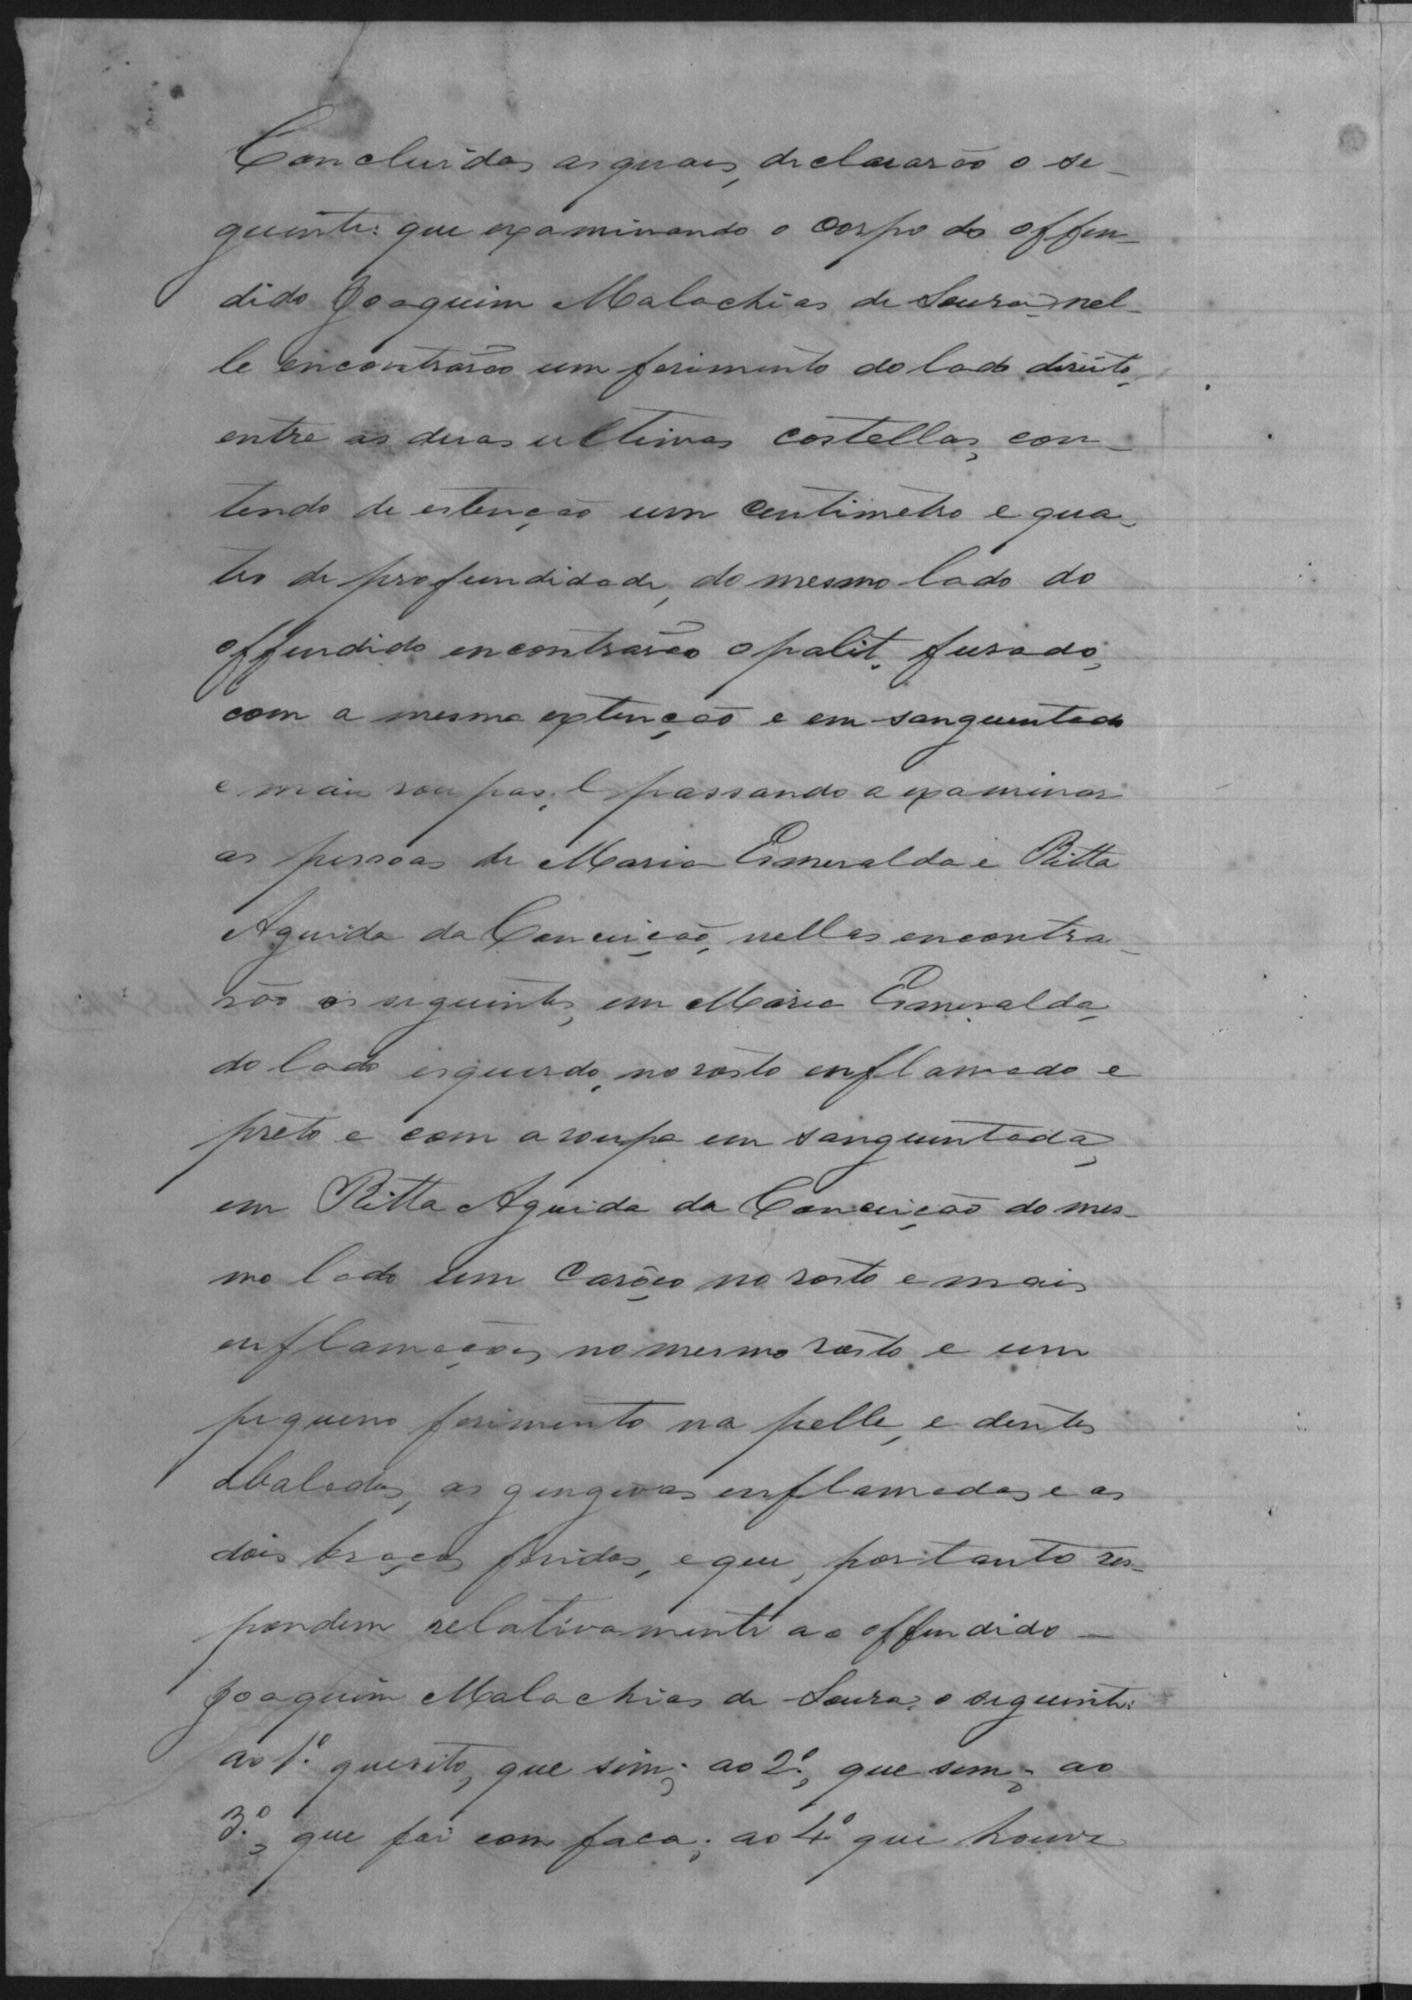 Concluidas as quaes, declararão o se-
guinte: que examinando o corpo do offen-
dido Joaquim Malachias de Souza, nel-
le encontrarão um ferimento do lado direito,
entre as duas ultimas costellas, con-
tendo de estenção um centimetro e qua-
tro de profundidade, do mesmo lado do
offendido encontrarão o palit. furado,
com a mesma extenção e em sanguentado
e mais roupas. E passando a examinar
as pessoas de Maria Esmeralda e Ritta
Aguida da Conceição, nellas encontra-
rão os seguintes, em Maria Esmeralda,
do lado esquerdo, no rosto enflamado e
preto e com a roupa em sanguentada,
em Ritta Aguida da Conceição do mes-
mo lado um caróço no rosto e mais
enflamações no mesmo rosto e um
pequeno ferimento na pelle, e dentes
abalados, as gengivas enflamadas e as
dois braços feridos, e que, portanto res-
pondem relativamente ao offendido -
Joaquim Malachias de Souza, o seguinte:
ao 1.º quesito, que sim; ao 2.º, que sim; ao
3.º, que foi com faca; ao 4º que houve